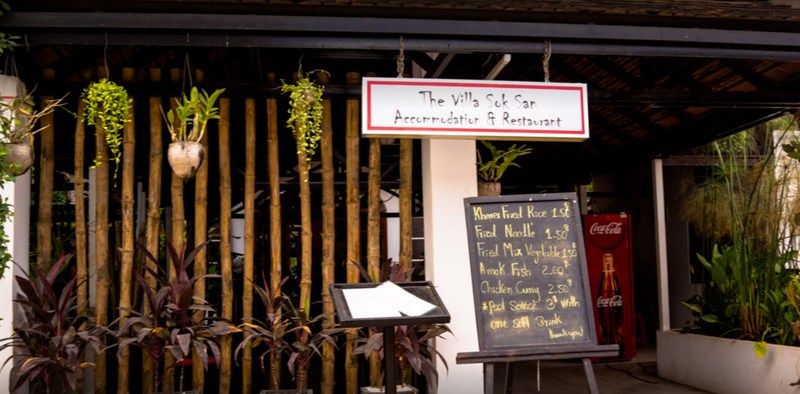 The Villa Sok San
Accommodation & Restaurant
Khmer Fried Rice 1.50$
Fried Noodle 1.50$
Fried Mix Vegetable 1.50$
Amok Fish 2.00$
Chicken Curry 2.50$
* Pool Service 3$ with
one soft Drink
Thank you
Coca-Cola
Coca-Cola